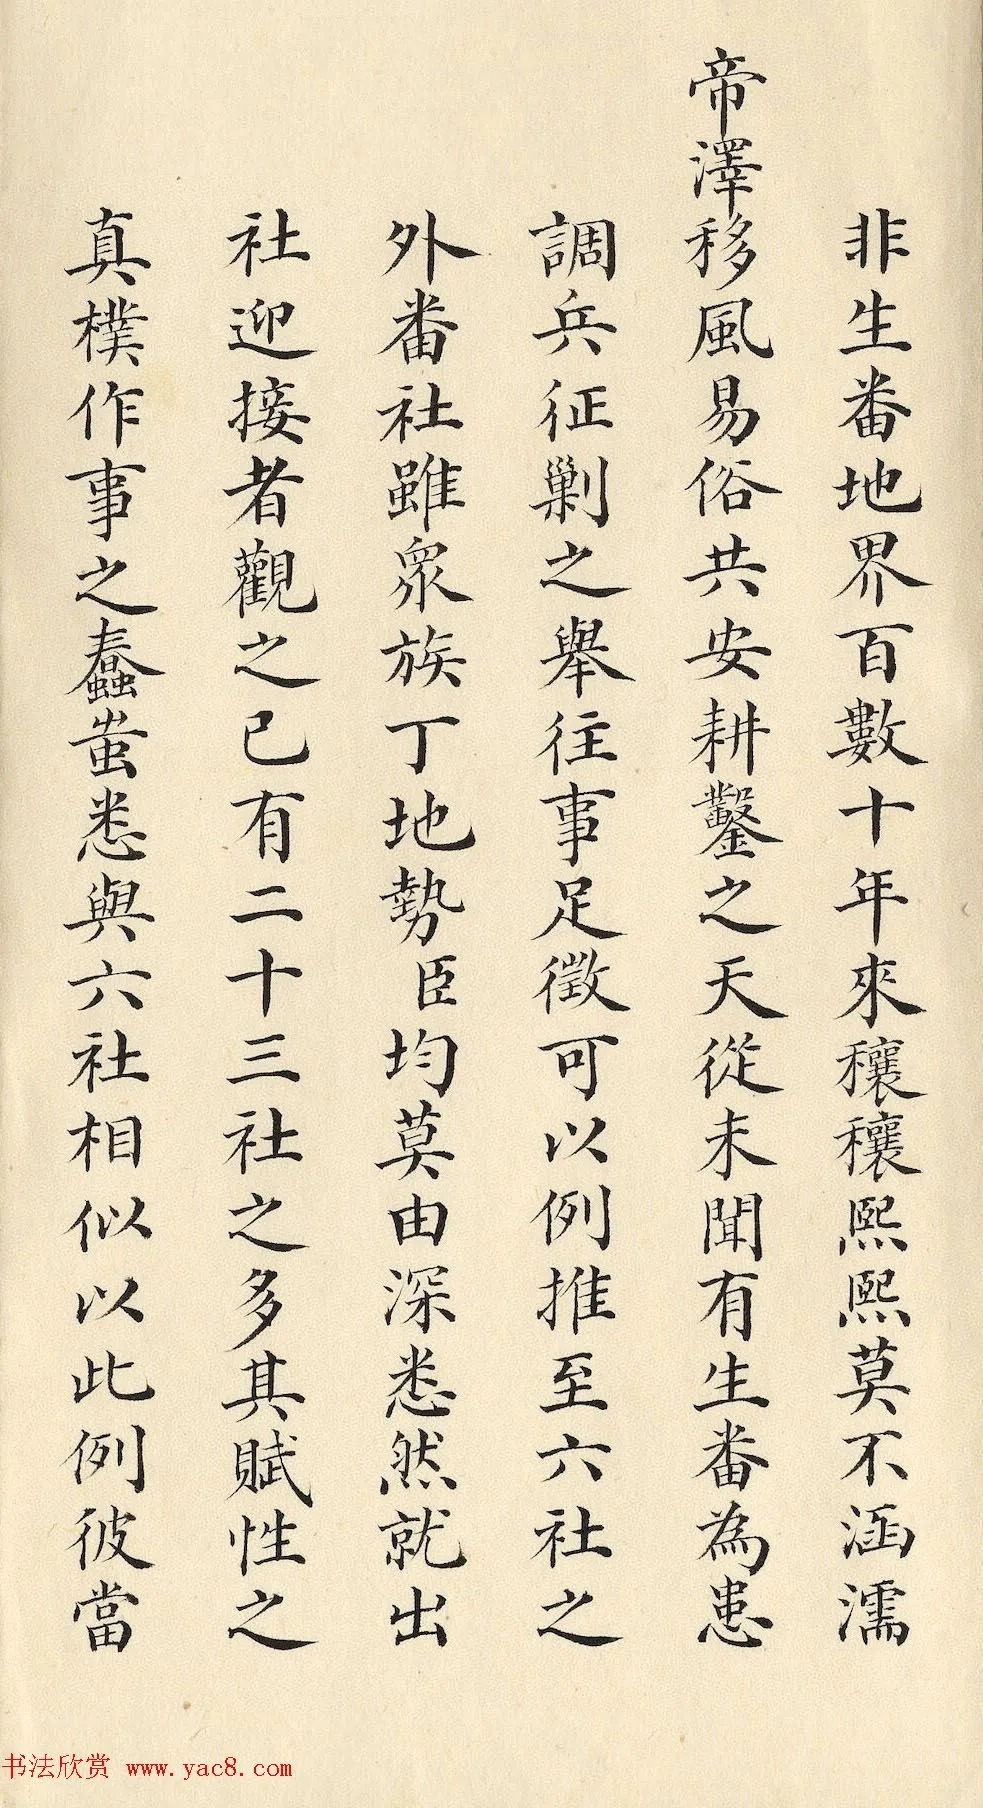 非生番地界百數十年來穰穰熙熙莫不涵濡
帝澤移風易俗共安耕鑿之天從未聞有生番為患
調兵征剿之舉往事足徵可以例推至六社之
外番社雖眾族丁地勢臣均莫由深悉然就出
社迎接者觀之已有二十三社之多其賦性之
真樸作事之蠢蚩悉與六社相似以此例彼當
书法欣赏 www.yac8.com